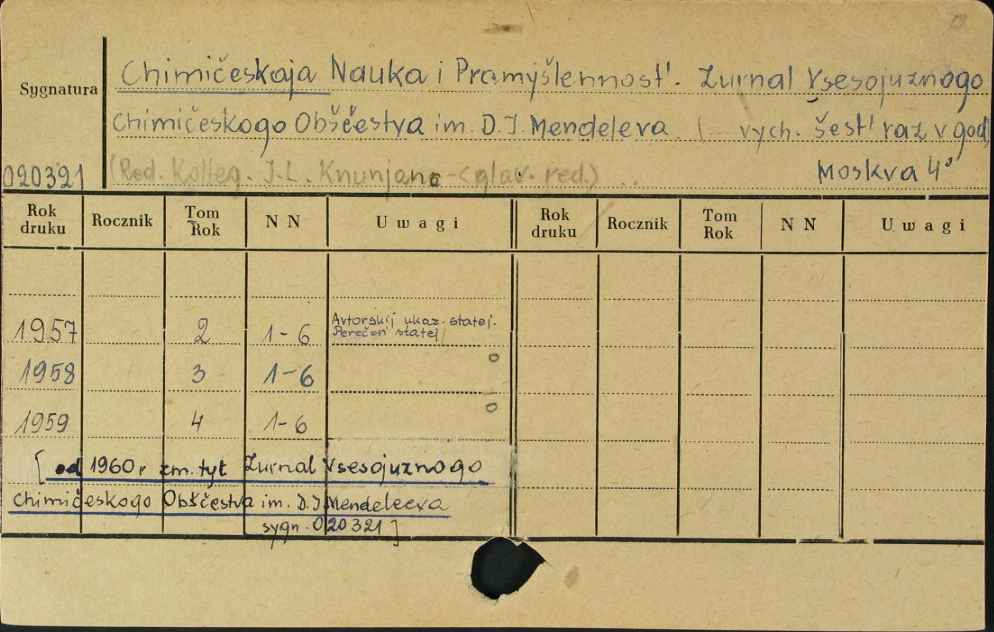 Chimičeskaja Nauka i Pramyšlennost'. Żurnal Vsesojuznogo
Sygnatura
Chimičeskogo Obščestva im. D.J. Mendeleva (- vych. šest' raz v god)
020321 (Red. Kolleg. J.L. Knunjanc - (glav. red.) .. Moskva 4°
Rok druku Rocznik Tom Rok N N Uwagi Rok druku Rocznik Tom Rok N N Uwagi
1957 2 1-6 Avtorskij ukaz. statej.
Perečen' statej
1958 3 1-6
1959 4 1-6
[od 1960 r zm. tyt Żurnal Vsesojuznogo
Chimičeskogo Obščestva im. D.J Mendeleeva
sygn. 020321]